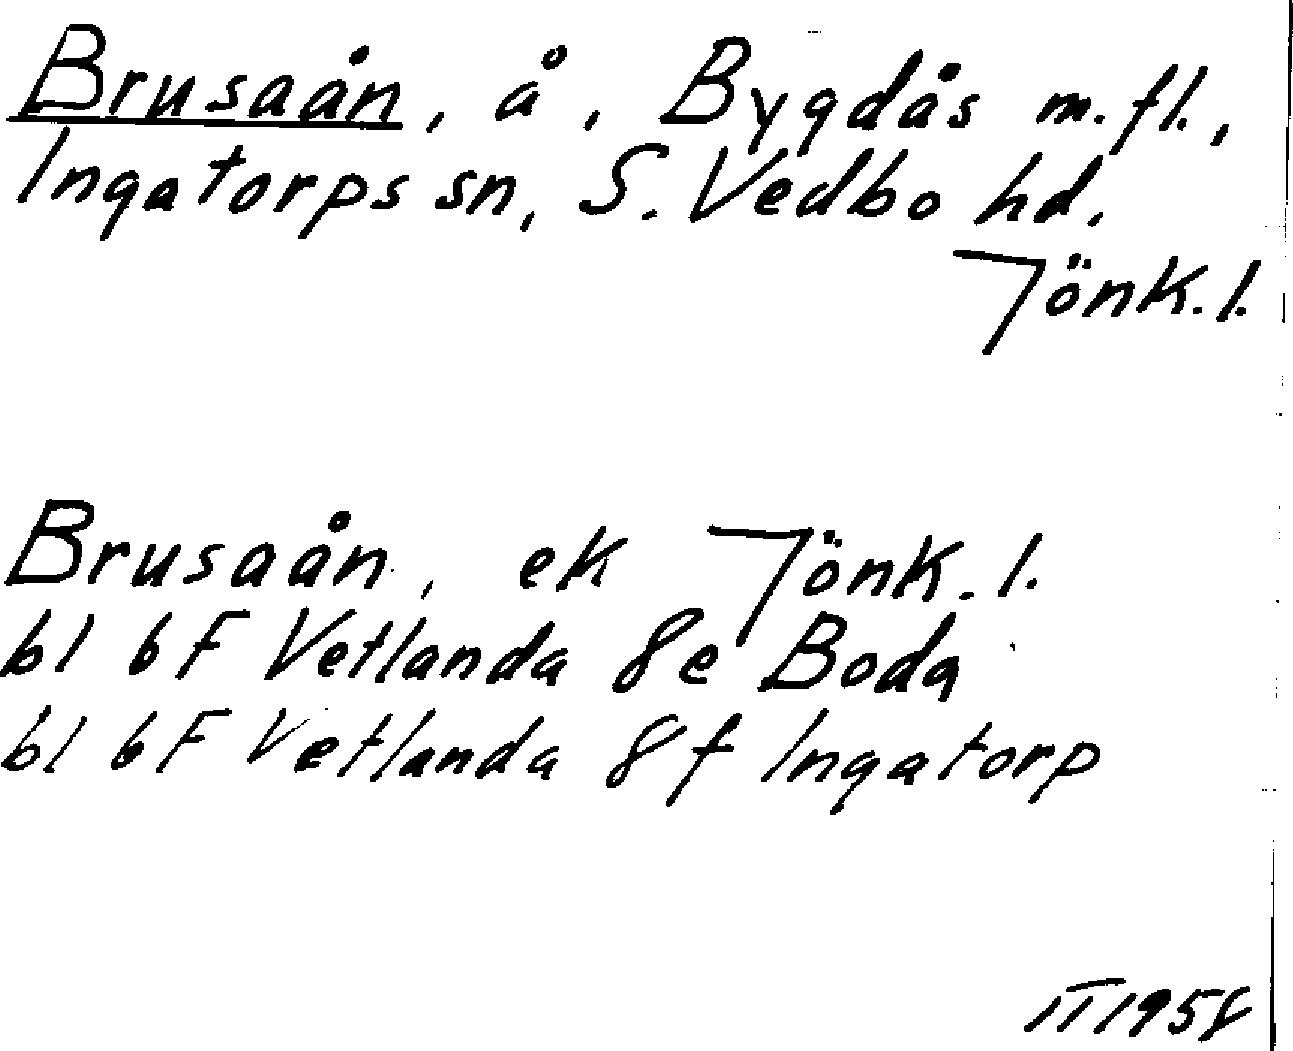 Brusaån, å, Bygdås m.fl.,
Ingatorps sn, S. Vedbo hd.
Jönk.l.
Brusaån, ek Jönk.l.
bl 6F Vetlanda 8e Boda
bl 6F Vetlanda 8f Ingatorp
1958